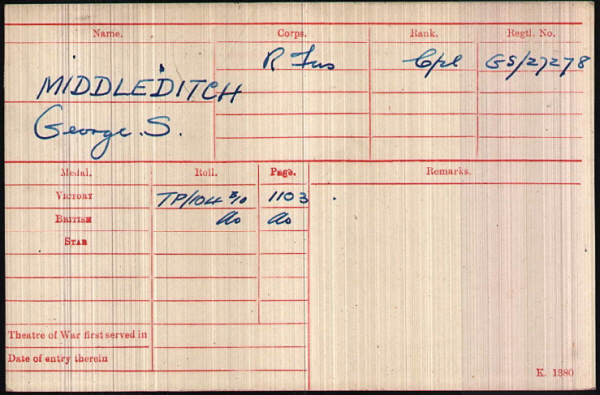 Name. Corps. Rank. Regtl. No.
R Fus Cpl GS/27278
MIDDLEDITCH
George. S.
Medal. Roll. Page. Remarks.
VICTORY TP/104 1103
BRITISH do do
STAR
Theatre of War first served in
Date of entry therein
K. 1380